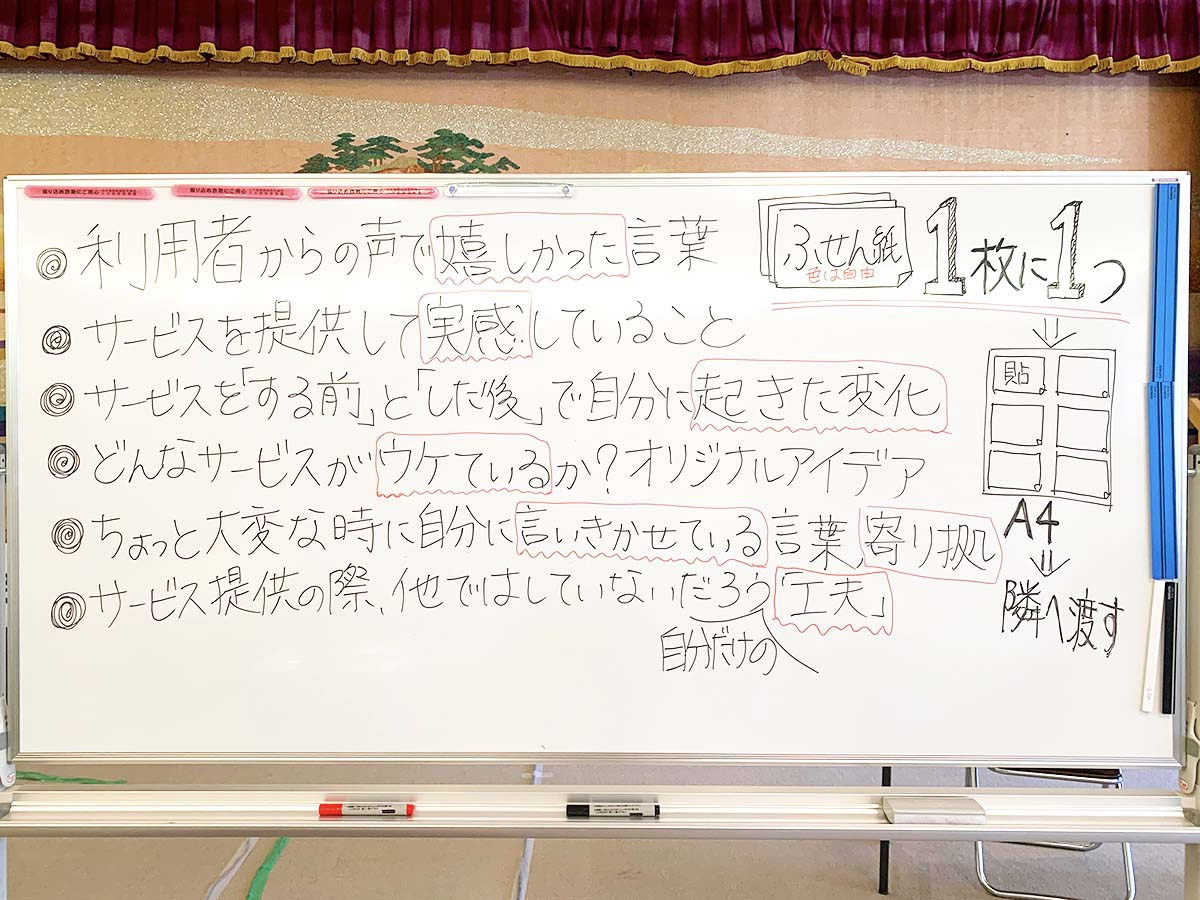 振り込め詐欺にご用心
振り込め詐欺にご用心
◎ 利用者からの声で嬉しかった言葉
◎ サービスを提供して実感していること
◎ サービスを「する前」と「した後」で自分に起きた変化
◎ どんなサービスがウケているか?オリジナルアイデア
◎ ちょっと大変な時に自分に言いきかせている言葉、寄り拠し
◎ サービス提供の際、他ではしていないだろう「工夫」
自分だけの
ふせん紙
色は自由
1枚に1つ
⇓
貼
A4
⇓
隣へ渡す